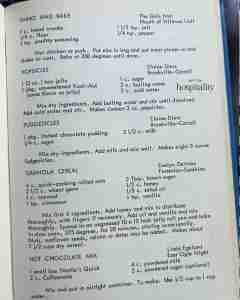 SHAKE AND BAKE
1 c. bread crumbs
1/4 c. flour
1 tsp. poultry seasoning
1 1/2 tsp. salt
1/4 tsp. pepper
Wet chicken or pork. Put mix in bag and put meat pieces in one
shake to coat. Bake at 350 degrees until done.
POPSICLES
Elaine Glens
Brookville-Carroll
1 (3 oz.) box jello
1 pkg. unsweetened Kool-Aid
(same flavor as jello)
1 c. sugar
2 c. boiling water
2 c. cold water
hospitality
Mix dry ingredients. Add boiling water and mix until dissolved.
Add cold water and stir. Makes
FUDGESICLES
Elaine Glens
Brookville-Carroll
1 pkg. instant chocolate pudding
1/4 c. sugar
2 1/2 c. milk
Mix dry ingredients. Add milk and mix well. Makes eight 3 ounce
fudgesicles.
GRANOLA CEREAL
Evelyn
4 c. quick-cooking rolled oats
2 1/2 c. wheat germ
1 c. coconut
1 tsp. cinnamon
brown sugar
1/2 c. honey
1/3 c. salad oil
1 tsp. vanilla
Mix first 4 ingredients. Add honey and mix to distribute
thoroughly, with fingers if necessary. Add oil and vanilla and mix
thoroughly. Spread in an ungreased 10 x 15 inch jelly roll pan and bake
in slow oven, 275 degrees, for 30 minutes, stirring occasionally.
Nuts, sunflower seeds, raisins or dates may be added. Makes about
7 1/2 cups dry cereal.
HOT CHOCOLATE MIX
Linda
1 small box Nestle's Quick
2 c. Coffeemate
4 c. powdered milk
2 c. powdered sugar (optional)
Mix and put in airtight container. To make: Use 1/2 cup to 1 cup
water.